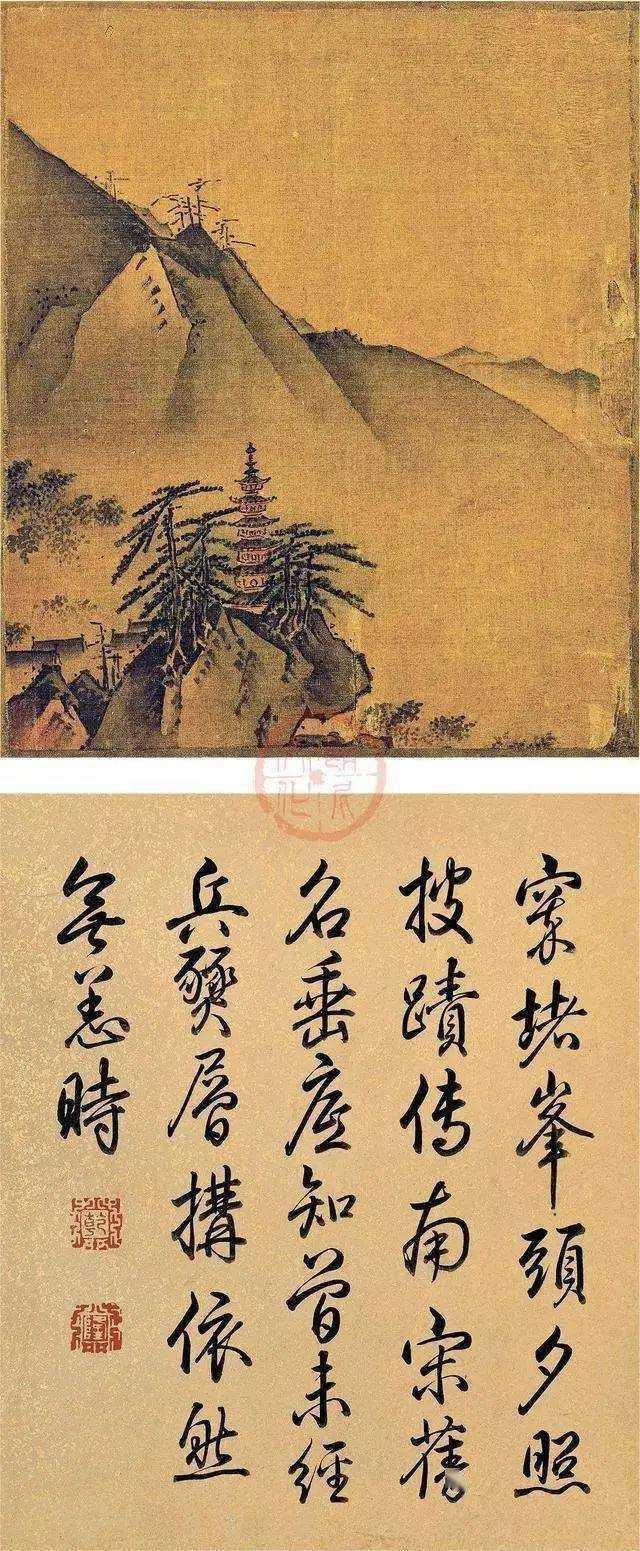 窣堵峯頭夕照
披蹟傳南宋舊
名垂底知曾未經
兵燹層構依然
無恙時
乾
隆